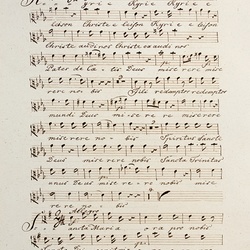 Kyrie Kyrie e
leison Christe e leison
Christe audi nos Christe exaudi nos
Pater de Cœlis Deus mise rere mise
rere nobis Fili redemptor redemptor
mundi Deus mise re re miserere
mise rere nobis Spiritus sancte
Deus miserere nobis Sancta Trinitas
unus Deus mise re re nobis mise
re re nobis
Allegro
Sancta Maria ora pro nobis